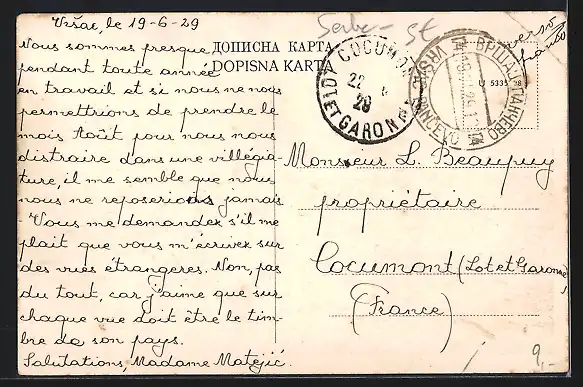 Vršac, le 19-6-29
Nous sommes presque
pendant toute année
en travail et si nous ne nous
permettrions de prendre le
mois Août pour nous nous
distraire dans une villégia-
ture, il me semble que nous
nous ne reposerions jamais
- Vous me demandez s'il me
plaît que vous m'écrivez sur
des vues étrangeres. Non, pas
du tout, car j'aime que sur
chaque vue doit être le tim-
bre de son pays.
Salutations, Madame Matejić.
ДОПИСНА КАРТА
DOPISNA KARTA
Serbe
verso
COCUMONT
22
28
LOT ET GARONNE
ВРШАЦ ПАНЧЕВО
VRŠAC PANČEVO
U 5335 28
Monsieur L. Beaupuy
propriétaire
Cocumont (Lot et Garonne)
(France)
9,-